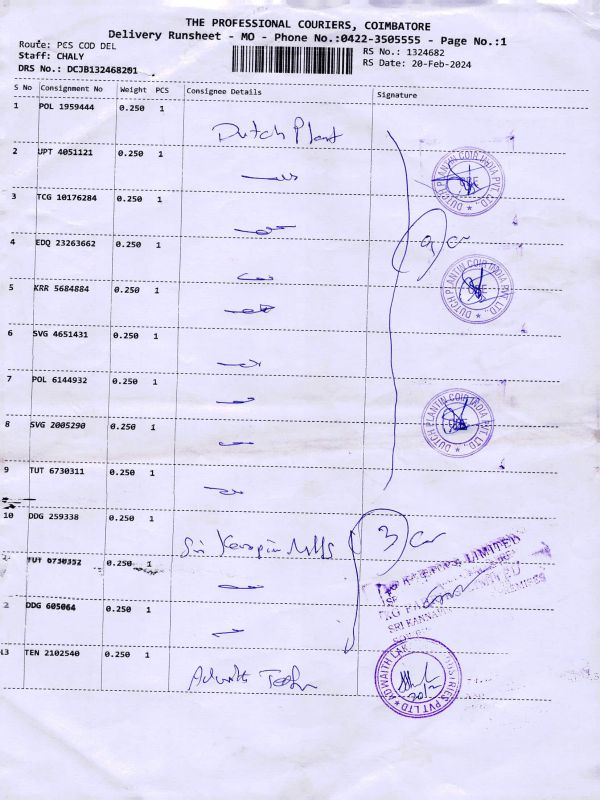 THE PROFESSIONAL COURIERS, COIMBATORE
Delivery Runsheet - MO - Phone No.:0422-3505555 - Page No.:1
Route: PCS COD DEL
Staff: CHALY
DRS No.: DCJB132468201
RS No.: 1324682
RS Date: 20-Feb-2024
S No Consignment No Weight PCS Consignee Details Signature
1 POL 1959444 0.250 1
Dutch Plant
2 UPT 4051121 0.250 1
3 TCG 10176284 0.250 1
4 EDQ 23263662 0.250 1
5 KRR 5684884 0.250 1
6 SVG 4651431 0.250 1
7 POL 6144932 0.250 1
8 SVG 2005290 0.250 1
9 TUT 6730311 0.250 1
10 DDG 259338 0.250 1
Sri 3
TUT 6730352 0.250 1
2 DDG 605064 0.250 1
13 TEN 2102540 0.250 1
DUTCH PLANTIN COIR INDIA PVT. LTD.,
CBE
DUTCH PLANTIN COIR INDIA PVT. LTD.,
CBE
DUTCH PLANTIN COIR INDIA PVT. LTD.,
CBE
LIMITED
SRI KANNA
ADWAITH
PVT LTD
20/2